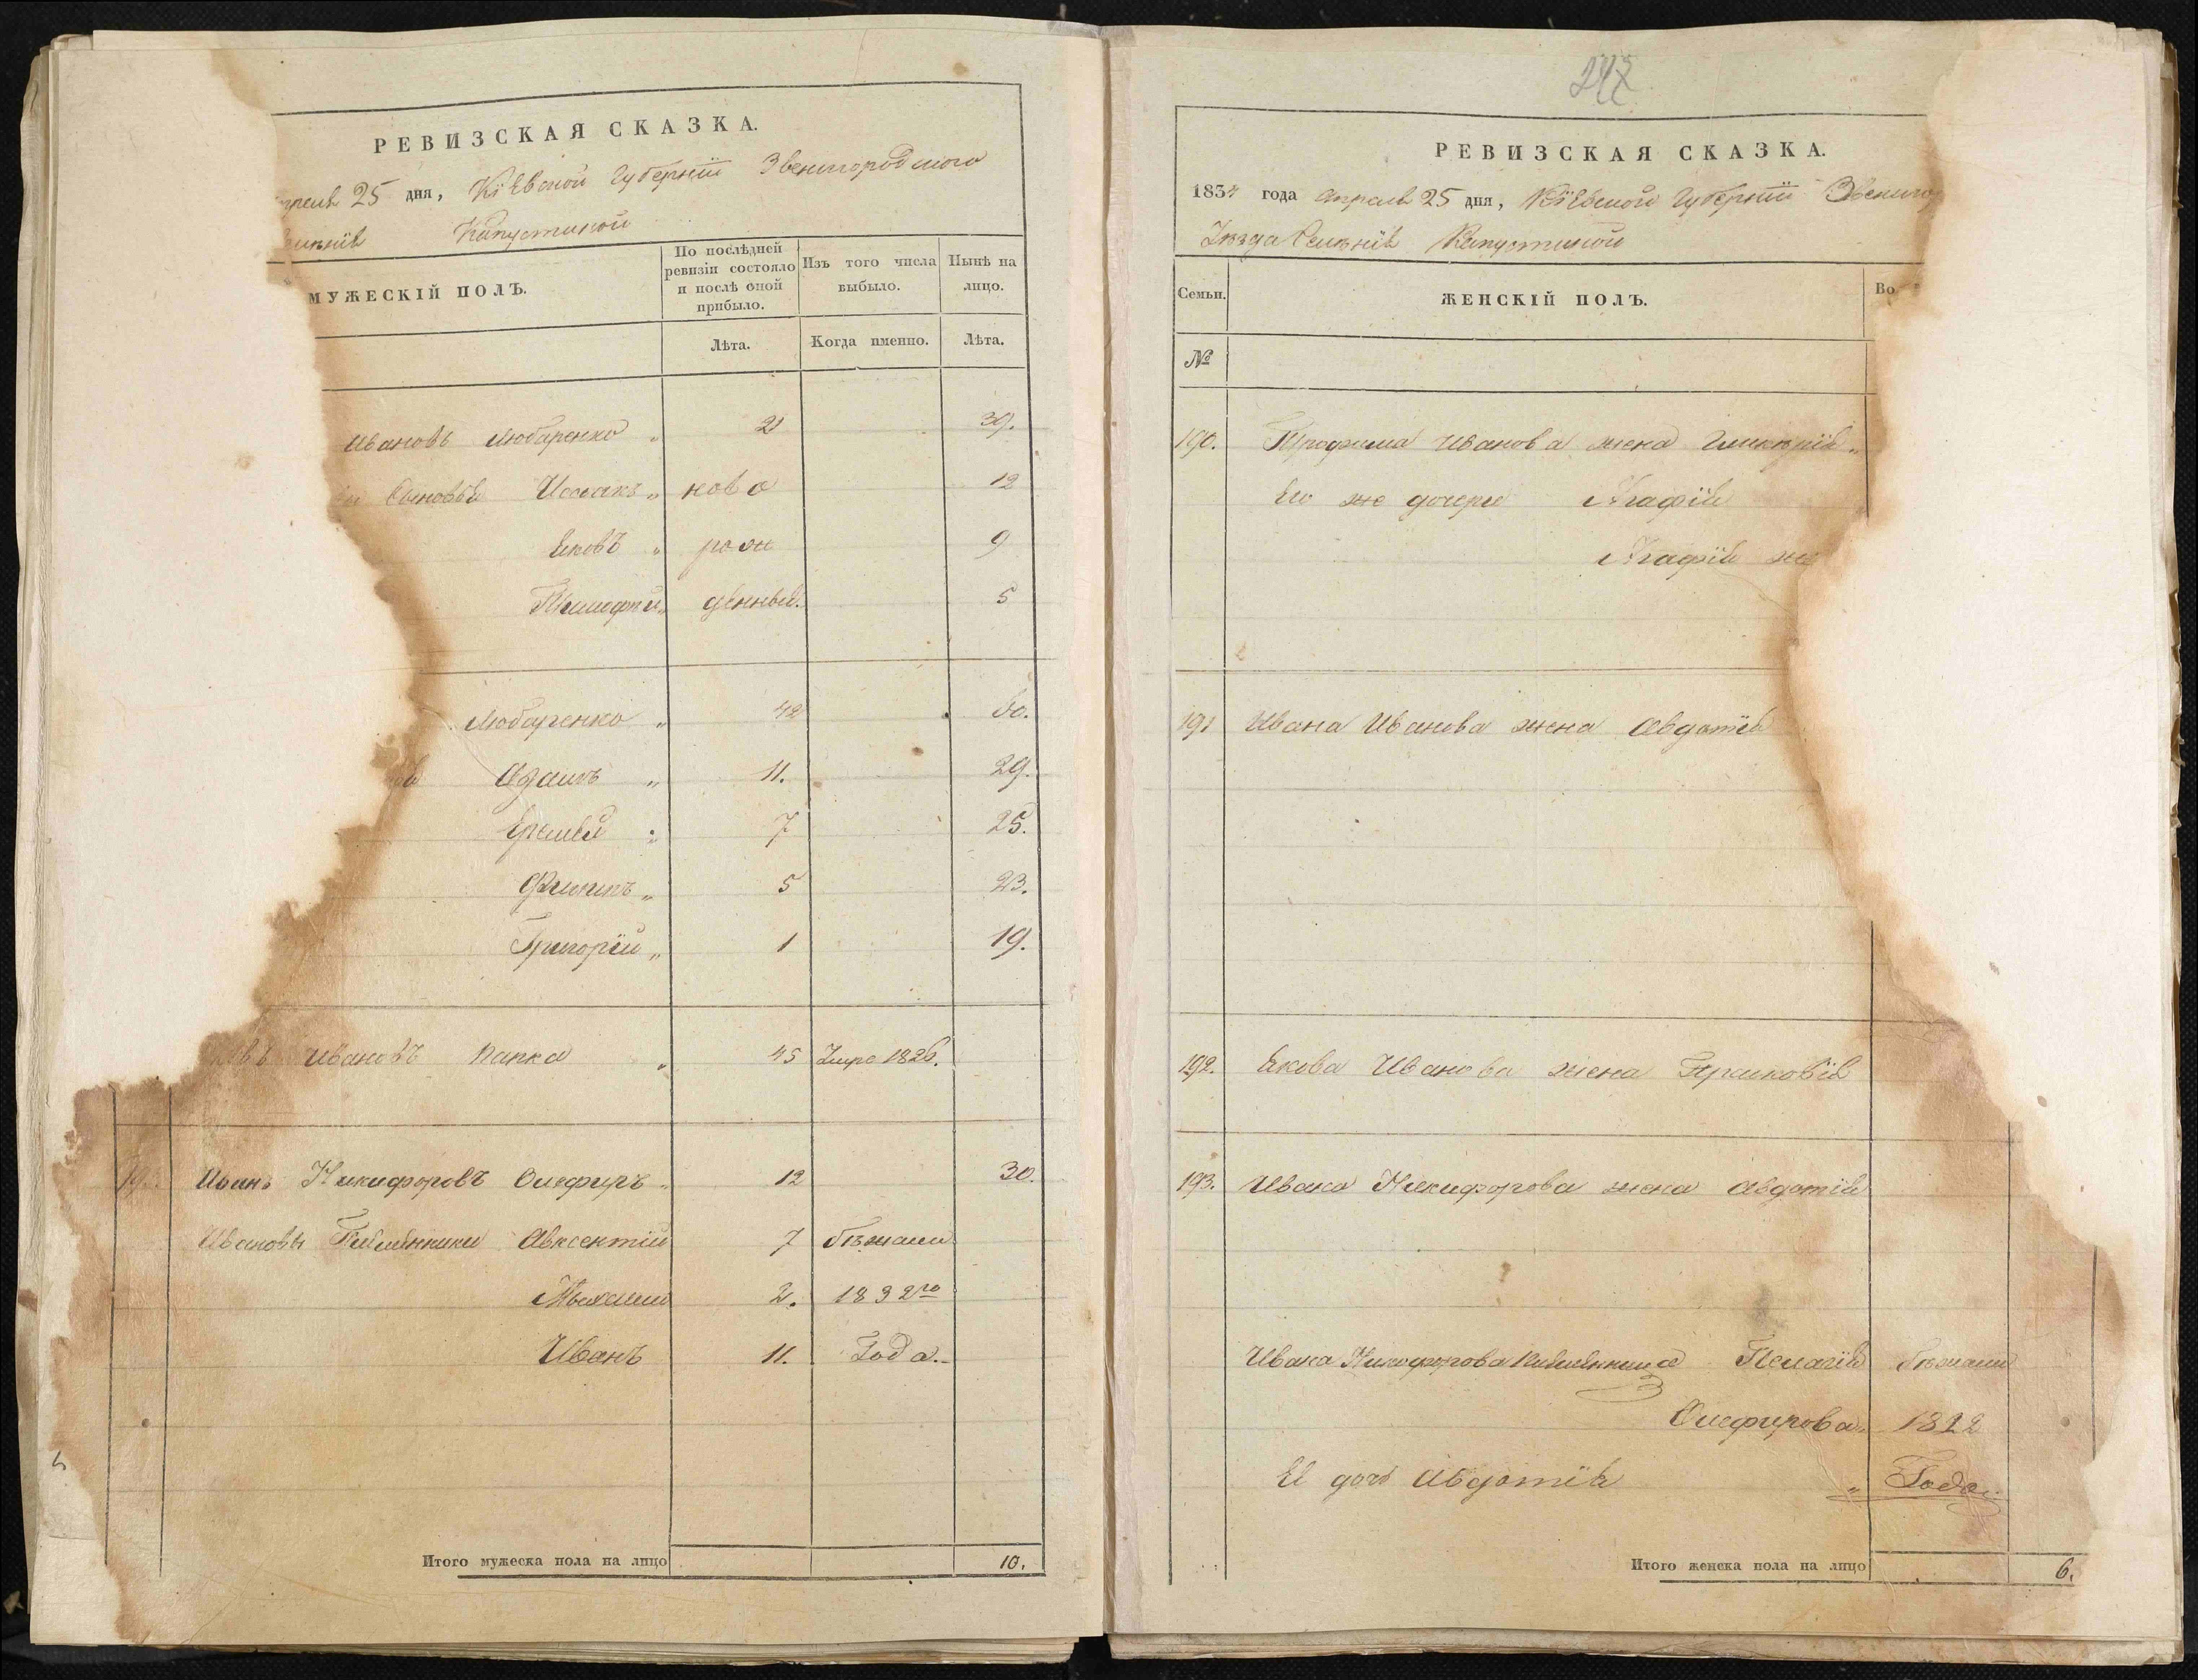 РЕВИЗСКАЯ СКАЗКА.
25 дня, Кіевской Губерніи Звенигородского
Капустиной
МУЖЕСКІЙ ПОЛЪ.
По послѣдней ревизіи состояло и послѣ оной прибыло.
Изъ того числа выбыло.
Нынѣ на лицо.
Лѣта.
Когда именно.
Лѣта.
Ивановъ Любаренко „ 21 39.
Сыновья Исаакъ „ ново 12
Яковъ „ рож 9
денный. 5
Любаренко „ 42 60.
Адамъ „ 11. 29.
Еремѣй „ 7 25.
Филипъ „ 5 23.
Григорій „ 1 19.
Ивановъ Папка „ 45 Умре 1826.
19 Иванъ Никифоровъ Олефиръ „ 12 30.
Ивановы Племянники Авксентій 7 бѣжали
2. 1832го
Иванъ 11. Года.
Итого мужеска пола на лицо 10.
247
РЕВИЗСКАЯ СКАЗКА.
1834 года Апреля 25 дня, Кіевской Губерніи Звениго
Уѣзда Селѣнія Капустиной
Семьи.
ЖЕНСКІЙ ПОЛЪ.
Во
№
190. Трофима Иванова жена Гликерія „
Его же дочери Агафія
Агафія же
191 Ивана Иванова жена Авдотія
192. Якова Иванова жена Прасковія
193. Ивана Никифорова жена Авдотія
Ивана Никифорова племянница Пелагія бѣжали
Олефирова „ 1822
Ея дочь Авдотія „ Года.
Итого женска пола на лицо 6.